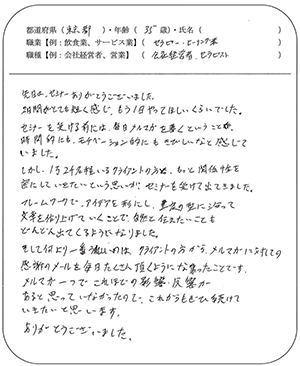 都道府県（東京都）・年齢（35歳）・氏名（　　　）
職業【例：飲食業、サービス業】（セラピー・ヒーリング業）
職種【例：会社経営者、営業】（会社経営者、セラピスト）
先日は、セミナーありがとうございました。
2日間がとても短く感じ、もう1日やってほしいくらいでした。
セミナーを受ける前には、毎日メルマガを書くということが、
時間的にも、モチベーション的にもきびしいなと感じて
いました。
しかし、1524名程いるクライアントの方々と、もっと関係性を
密にしていきたいという思いが、セミナーを受けて出てきました。
フレームワークで、アイデアを形にし、書き方の型にそって
文章を作り上げていくことで、自然と伝えたいことも
どんどん出てくるようになりました。
そして何より一番嬉しいのは、クライアントの方から、メルマガに対しての
感謝のメールを毎日たくさん頂くようになったことです。
メルマガ一つで、これほどの影響・反響が
あると思っていなかったので、これからもぜひ続けて
いきたいと思います。
ありがとうございました。